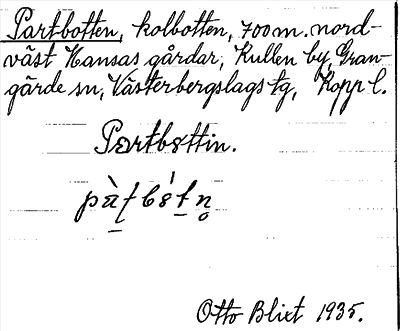 Partbotten, kolbotten, 700 m. nord-
väst Hansas gårdar, Kullen by, Gran-
gärde sn, Västerbergslags tg, Kopp l.
Partbottin.
Otto Blixt 1935.